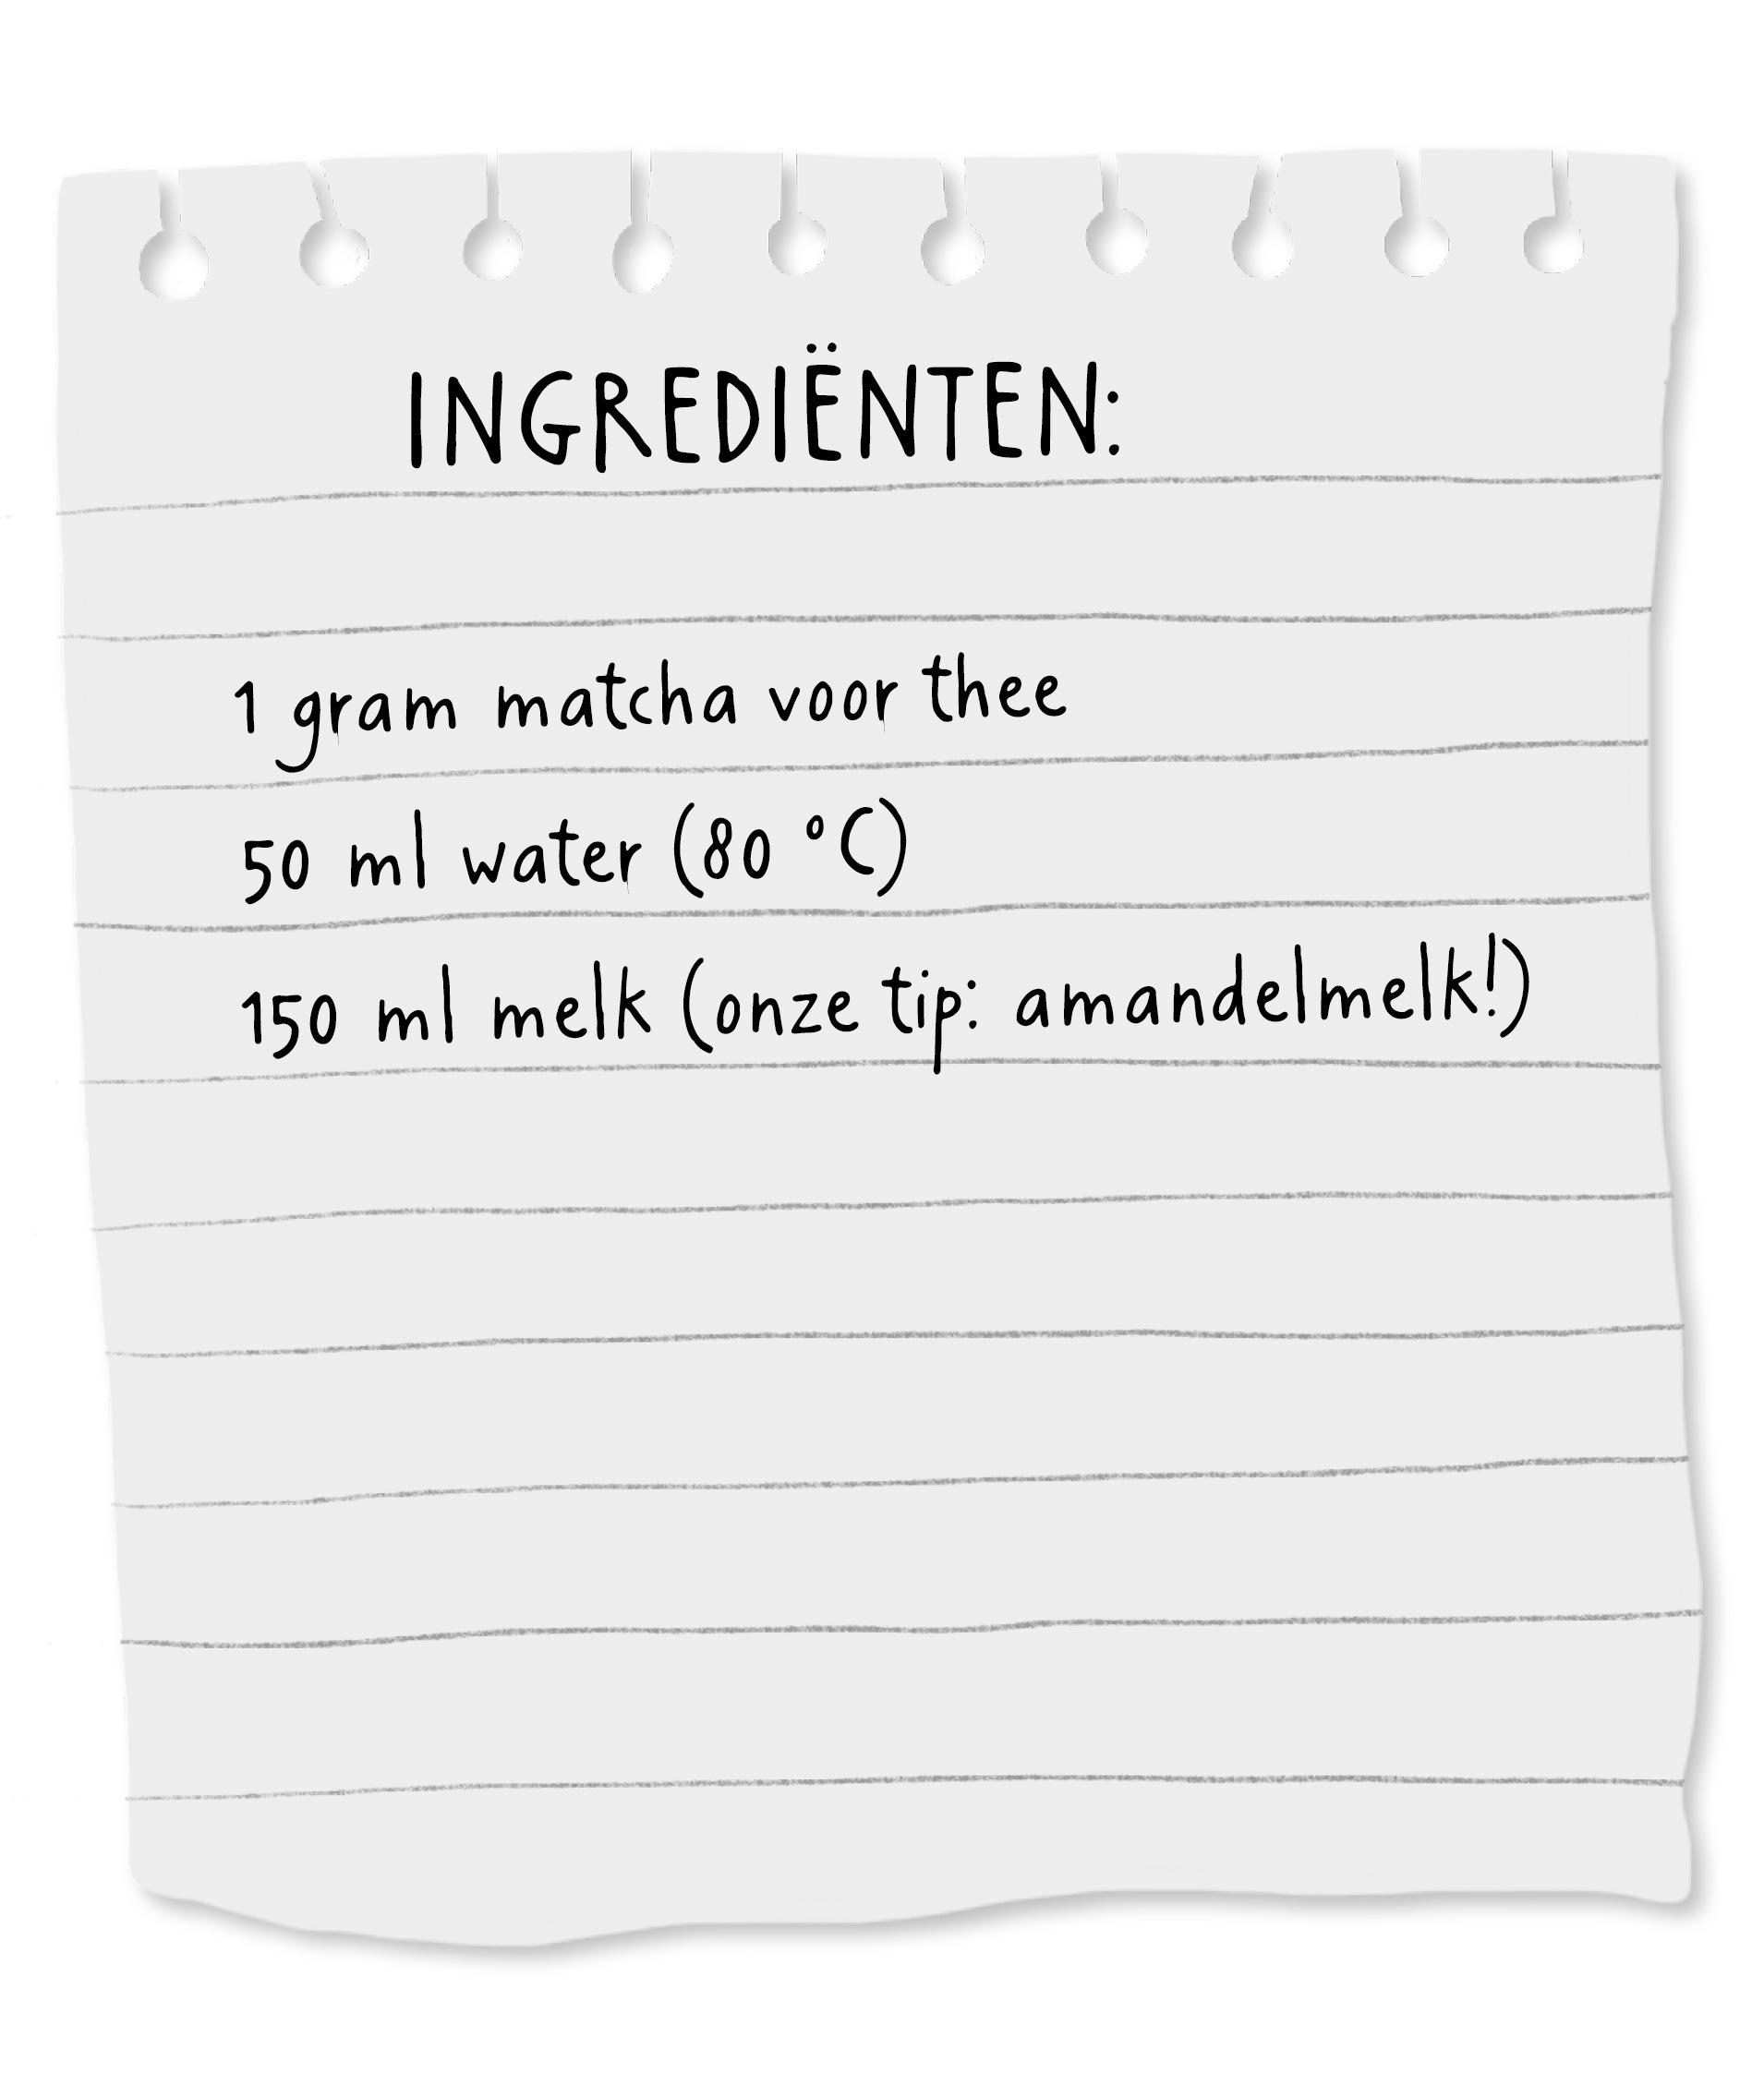 INGREDIËNTEN:
1 gram matcha voor thee
50 ml water (80 °C)
150 ml melk (onze tip: amandelmelk!)